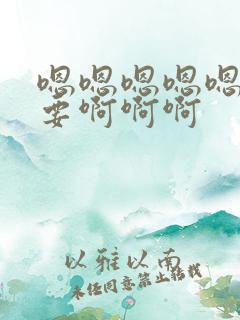 嗯嗯嗯嗯嗯
要啊啊啊
以雅以南
未经同意禁止转载